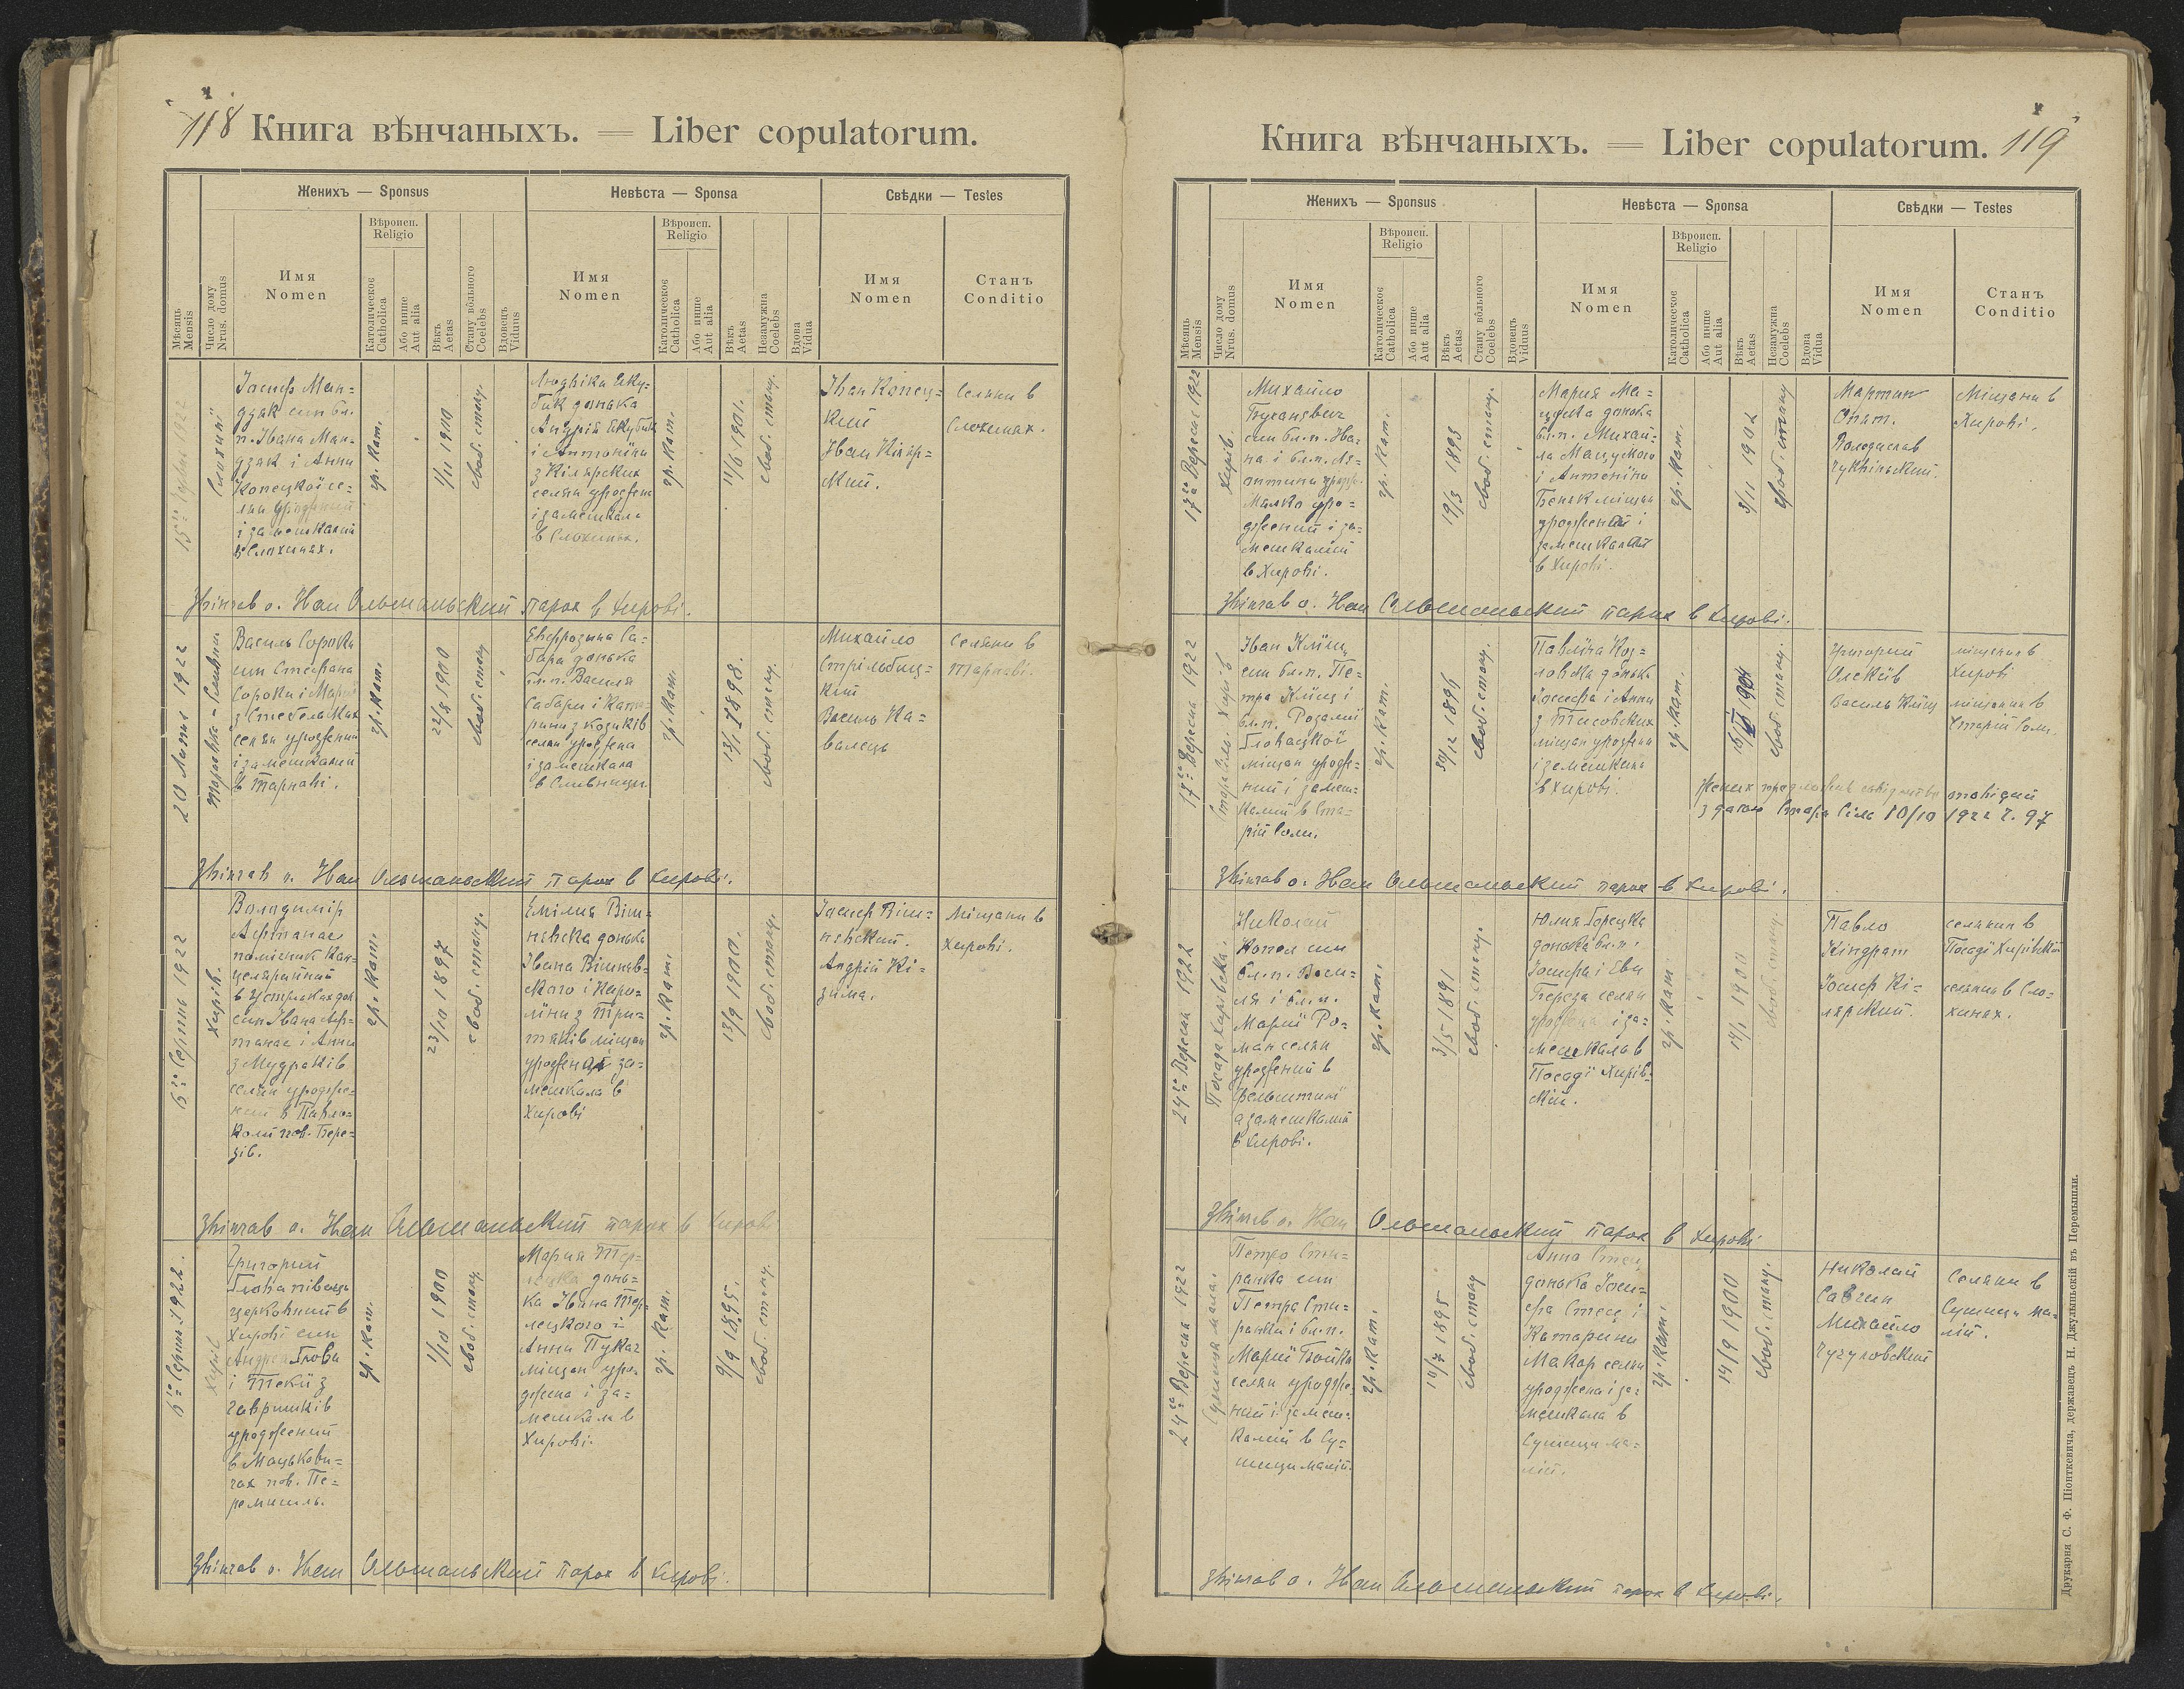 118 Книга вѣнчаныхъ. — Liber copulatorum.
Женихъ — Sponsus
Невѣста — Sponsa
Свѣдки — Testes
Мѣсяць
Mensis
Число дому
Nrus. domus
Имя
Nomen
Вѣроисп.
Religio
Католическое
Catholica
Або инше
Aut alia
Вѣкъ
Aetas
Стану вôльного
Coelebs
Вдовець
Viduus
Имя
Nomen
Вѣроисп.
Religio
Католическое
Catholica
Або инше
Aut alia
Вѣкъ
Aetas
Незамужна
Coelebs
Вдова
Vidua
Имя
Nomen
Станъ
Conditio
1922
Слохинї
Іосиф Ман=
дзак син бл.
п. Івана Ман=
дзак і Анни
Конецкої се=
лян уроджений
і замешкалий
в Слохинях.
гр. кат.
1/11 1900
своб. стану.
Людвіка Яку=
бик донька
Андрія Якубик
і Антонїни
з Кілярских
селян уроджена
і замешкала
в Слохинях.
гр. кат.
11/6 1901.
своб. стану.
Іван Конец=
кий
Іван Кіляр=
ский.
Селяни в
Слохинях.
Звінчав о. Іван Ольшаньский парох в Хирові.
20 Лютий 1922
Василь Сорока
син Стефана
Сороки і Марії
селян уроджений
і замешкалий
в Тарнаві.
гр. кат.
22/8 1900
своб. стану
Евфрозина Са=
бара донька
бл. п. Василя
Сабари і Ката=
рини з Козиків
селян уроджена
і замешкала
в Сливници
гр. кат.
13/1 1898.
своб. стану.
Михайло
Стрільбиц=
кий
Василь Ка=
валець
Селяни в
Тарнаві.
Звінчав о. Іван Ольшаньский парох в Хирові.
6го Серпня 1922
Хирів.
Володимір
Афтанас
помічник кан=
целярийний
син Івана Аф=
танас і Анни
з Мудраків
селян уродже=
ний в Павло=
комі пов. Бере=
зів.
гр. кат.
23/10 1897
своб. стану.
Емілия Віш=
нєвска донька
Івана Вішнєв=
ского і Каро=
лїни з Три=
тяків міщан
уроджена і за=
мешкала в
Хирові
гр. кат.
13/9 1900.
своб. стану.
Іосиф Віш=
нєвский.
Андрій Кі=
зима.
Міщани в
Хирові.
Звінчав о. Іван Ольшаньский парох в Хирові
6го Серпня 1922.
Хирів
Григорий
церковний в
Хирові син
і Теклї з
Гавришків
уроджений
в Мацькови=
чах пов. Пе=
ремишль.
гр. кат.
1/10 1900
своб. стану.
Мария Тер=
лецка донь=
ка Івана Тер=
лецкого і
Анни Пукач
міщан уро=
джена і за=
мешкала в
Хирові.
гр. кат.
9/9 1895.
своб. стану.
Звінчав о. Іван Ольшаньский парох в Хирові.
Книга вѣнчаныхъ. — Liber copulatorum. 119
Женихъ — Sponsus
Невѣста — Sponsa
Свѣдки — Testes
Мѣсяць
Mensis
Число дому
Nrus. domus
Имя
Nomen
Вѣроисп.
Religio
Католическое
Catholica
Або инше
Aut alia
Вѣкъ
Aetas
Стану вôльного
Coelebs
Вдовець
Viduus
Имя
Nomen
Вѣроисп.
Religio
Католическое
Catholica
Або инше
Aut alia
Вѣкъ
Aetas
Незамужна
Coelebs
Вдова
Vidua
Имя
Nomen
Станъ
Conditio
17го Вересня 1922
Хирів.
Михайло
син бл. п. Іва=
на і бл. п. Ан=
Малко уро=
джений і за=
мешкалий
в Хирові.
гр. кат.
19/3 1893
своб. стану.
Мария Ма=
цуска донька
бл. п. Михай=
ла Мацуского
і Антонїни
міщан
і
замешкалий
в Хирові.
гр. кат.
3/11 1902
своб. стану
Мартин
Опат.
Володислав
Міщани в
Хирові.
Звінчав о. Іван Ольшаньский парох в Хирові.
17го Вересня 1922
Іван Клїщ
син бл. п. Пе=
тра Клїщ і
бл. п. Розалиї
Гловацкої
міщан уродже=
ний і замеш=
калий в Ста=
рій Соли.
гр. кат.
30/12 1896
своб. стану.
Павлїна Коз=
ловска донька
Іосифа і Анни
з Тисовских
міщан уроджена
і замешкала
в Хирові.
гр. кат.
своб. стану.
Григорий
Олексїв
Василь Клїщ
міщанин в
Хирові
міщанин в
Старій Соли.
з датою Стара Сіль 10/10 1922 Ч. 97
Звінчав о. Іван Ольшаньский парох в Хирові.
24го Вересня 1922
Посада хирівска.
Николай
Копел син
бл. п. Васи=
ля і бл. п.
Мариї Ро=
ман селян
уроджений в
Фельштинї
а замешкалий
в Хирові.
гр. кат.
3/5 1891
своб. стану.
Юлия Горецка
донька бл. п.
Іосифа і Еви
Береза селян
уроджена і за=
мешкала в
Посадї Хирів=
скій.
гр. кат.
14/1 1900
своб. стану.
Павло
Кіндрат
Іосиф Кі=
лярский.
селянин в
Посадї Хирівскій
селянин в Сло=
хинях.
Звінчав о. Іван Ольшаньский парох в Хирові
24го Вересня 1922
Сушиця мала.
Петро Сти=
ранка син
Петра Сти=
ранки і бл. п.
Мариї Бойко
селян уродже=
ний і замеш=
калий в Су=
шици малій.
гр. кат.
10/7 1895
своб. стану
Анна Стец
донька Іоси=
фа Стец і
Катарини
Макар селян
уроджена і за=
мешкала в
Сушици ма=
лій.
гр. кат.
14/9 1900
своб. стану.
Николай
Савчин
Михайло
Селяни в
Сушици ма=
лій.
Звінчав о. Іван Ольшаньский парох в Хирові.
Друкарня С. Ф. Піонткевича, державець Н. Джулыньскій въ Перемышли.